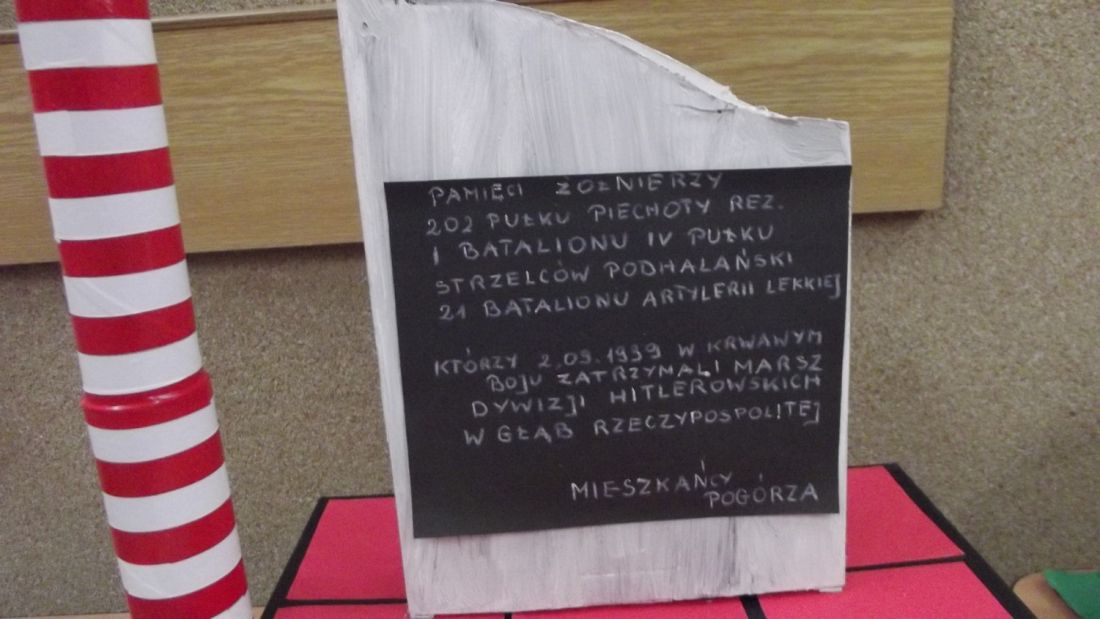 PAMIĘCI ŻOŁNIERZY
202 PUŁKU PIECHOTY REZ.
I BATALIONU IV PUŁKU
STRZELCÓW PODHALAŃSKI
21 BATALIONU ARTYLERII LEKKIEJ
KTÓRZY 2.09.1939 W KRWAWYM
BOJU ZATRZYMALI MARSZ
DYWIZJI HITLEROWSKICH
W GŁĄB RZECZYPOSPOLITEJ
MIESZKAŃCY
POGÓRZA